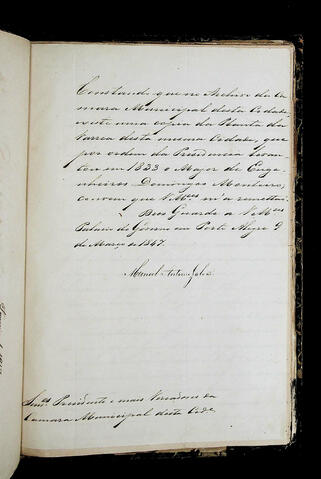 Constando que no Archivo da Ca
mara Municipal desta Cidade
existe uma copia da Planta da
Varzea desta mesma Cidade, que
por ordem da Presidencia levan
tou em 1833 o Major de Enge
nheiros Domingos Monteiro,
convem que V.Mces m'a remettão.
Deos Guarde a V.Mces
Palacio do Governo em Porto Alegre 9
de Março de 1847.
Manuel Antonio
Snres Presidente e mais Vereadores da
Camara Municipal desta Cide